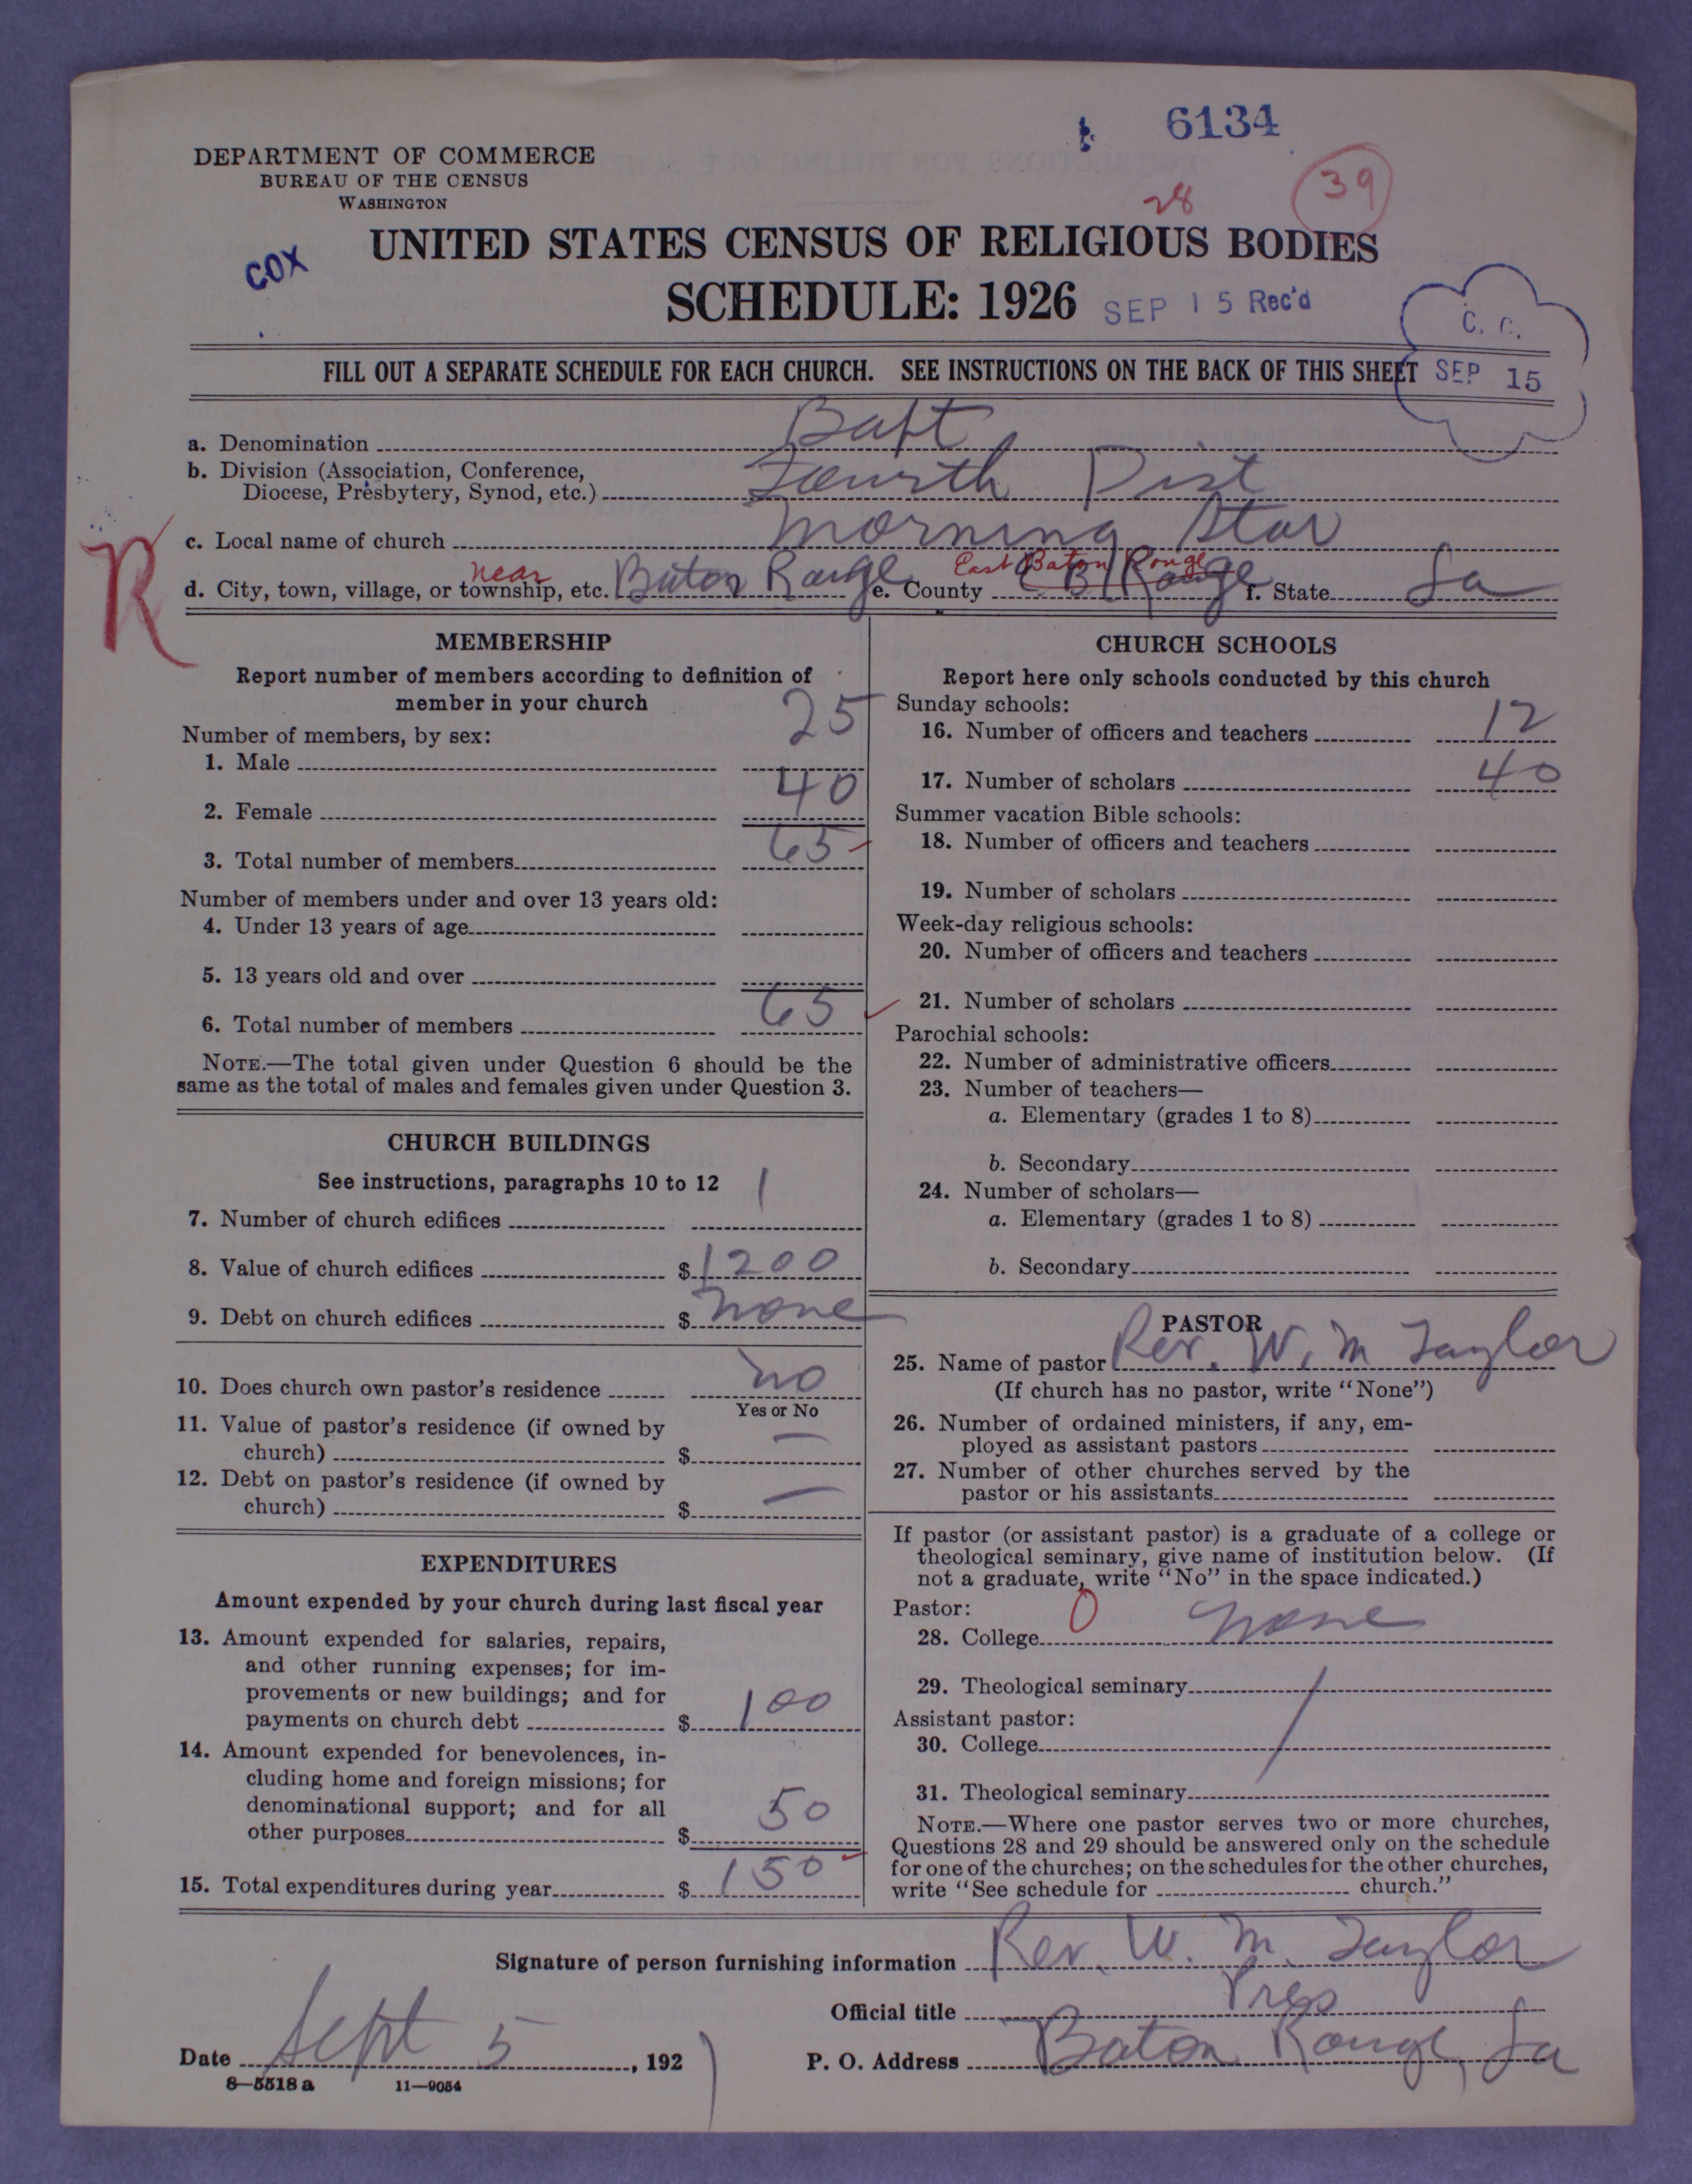 6134
DEPARTMENT OF COMMERCE
BUREAU OF THE CENSUS
WASHINGTON
28
39
UNITED STATES CENSUS OF RELIGIOUS BODIES
COX
SCHEDULE: 1926
SEP 15 Rec'd
C. C.
SEP 15
FILL OUT A SEPARATE SCHEDULE FOR EACH CHURCH. SEE INSTRUCTIONS ON THE BACK OF THIS SHEET
a. Denomination Bapt
b. Division (Association, Conference,
Diocese, Presbytery, Synod, etc.) Fourth Dist
R
c. Local name of church Morning Star
near
East Baton Rouge
d. City, town, village, or township, etc. Baton Rouge e. County E B Rouge f. State La
MEMBERSHIP
Report number of members according to definition of
member in your church
Number of members, by sex:
1. Male 25
2. Female 40
3. Total number of members 65
Number of members under and over 13 years old:
4. Under 13 years of age
5. 13 years old and over
6. Total number of members 65
NOTE.—The total given under Question 6 should be the
same as the total of males and females given under Question 3.
CHURCH BUILDINGS
See instructions, paragraphs 10 to 12
7. Number of church edifices 1
8. Value of church edifices $ 1200
9. Debt on church edifices $ none
10. Does church own pastor's residence no
Yes or No
11. Value of pastor's residence (if owned by
church) $ —
12. Debt on pastor's residence (if owned by
church) $ —
EXPENDITURES
Amount expended by your church during last fiscal year
13. Amount expended for salaries, repairs,
and other running expenses; for im-
provements or new buildings; and for
payments on church debt $ 100
14. Amount expended for benevolences, in-
cluding home and foreign missions; for
denominational support; and for all
other purposes $ 50
15. Total expenditures during year $ 150
CHURCH SCHOOLS
Report here only schools conducted by this church
Sunday schools:
16. Number of officers and teachers 12
17. Number of scholars 40
Summer vacation Bible schools:
18. Number of officers and teachers
19. Number of scholars
Week-day religious schools:
20. Number of officers and teachers
21. Number of scholars
Parochial schools:
22. Number of administrative officers
23. Number of teachers—
a. Elementary (grades 1 to 8)
b. Secondary
24. Number of scholars—
a. Elementary (grades 1 to 8)
b. Secondary
PASTOR
25. Name of pastor Rev. W. M Taylor
(If church has no pastor, write "None")
26. Number of ordained ministers, if any, em-
ployed as assistant pastors
27. Number of other churches served by the
pastor or his assistants
If pastor (or assistant pastor) is a graduate of a college or
theological seminary, give name of institution below. (If
not a graduate, write "No" in the space indicated.)
Pastor: 0
28. College none
29. Theological seminary
Assistant pastor:
30. College
31. Theological seminary
NOTE.—Where one pastor serves two or more churches,
Questions 28 and 29 should be answered only on the schedule
for one of the churches; on the schedules for the other churches,
write "See schedule for church."
Signature of person furnishing information Rev. W. M. Taylor
Official title Pres
Date Sept 5, 192
P. O. Address Baton Rouge, La
8—5518 a 11—9054